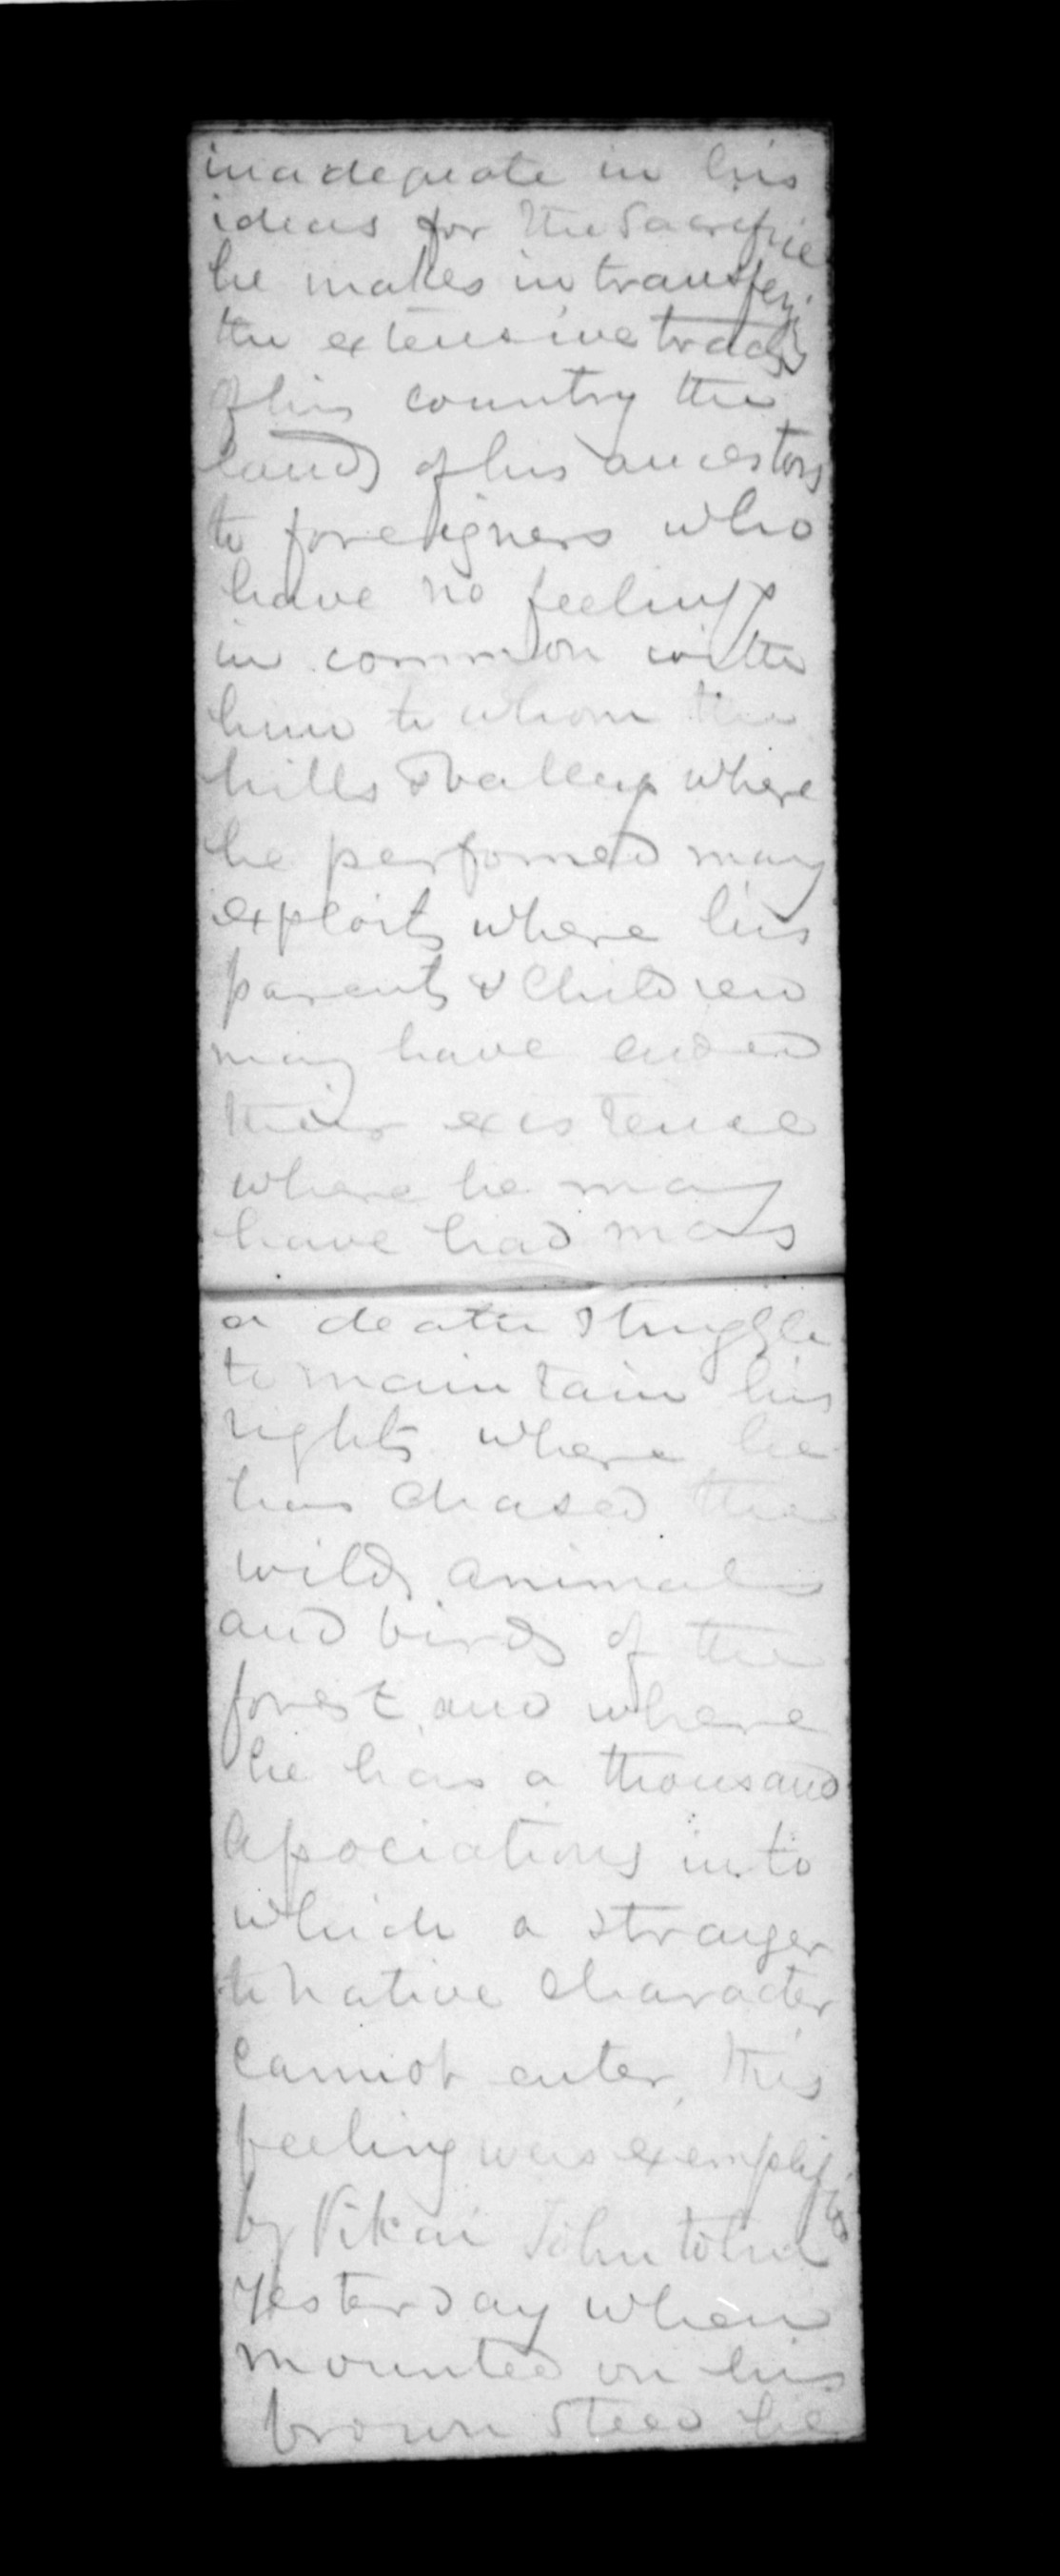 inadequate in his
ideas for the Sacrifice
he makes in transferg
the extensive tracts
of his country the
lands of his ancestors
to foreigners who
have no feelings
in common with
him to whom the
hills & valleys where
he perfomed many
exploits where his
parents & Children
may have ended
their existence
where he may
have had many
a death struggle
to maintain his
rights where he
has chased the
wild animals
and birds of the
forest, and where
he has a thousand
associations into
which a stranger
to native character
cannot enter, this
feeling was exemplified
by Pikai
Yesterday when
mounted on his
brown steed he